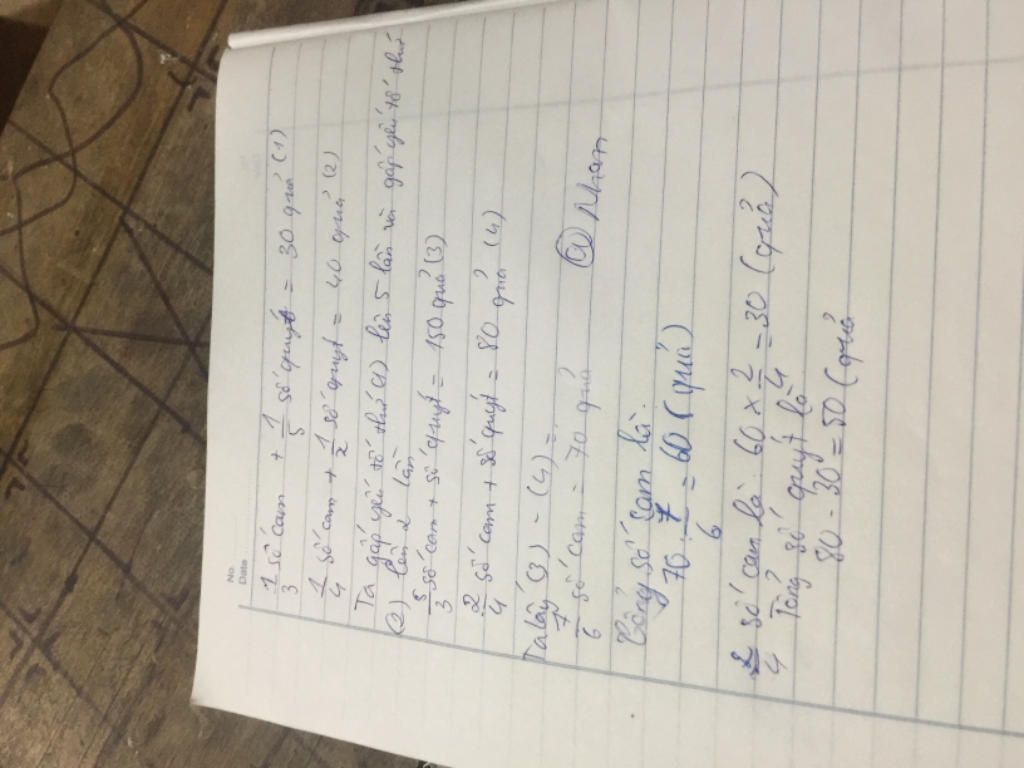 No.
Date
1/3 số cam + 1/5 số quýt = 30 quả (1)
1/4 số cam + 1/2 số quýt = 40 quả (2)
Ta gấp yếu tố thứ (1) lên 5 lần và gấp yếu tố thứ
(2) lên 2 lần
5/3 số cam + số quýt = 150 quả (3)
2/4 số cam + số quýt = 80 quả (4)
Ta lấy (3) - (4) =
7/6 số cam = 70 quả
@ Nhan
Tổng số cam là:
70 : 7/6 = 60 (quả)
2/4 số cam là: 60 × 2/4 = 30 (quả)
Tổng số quýt là
80 - 30 = 50 (quả